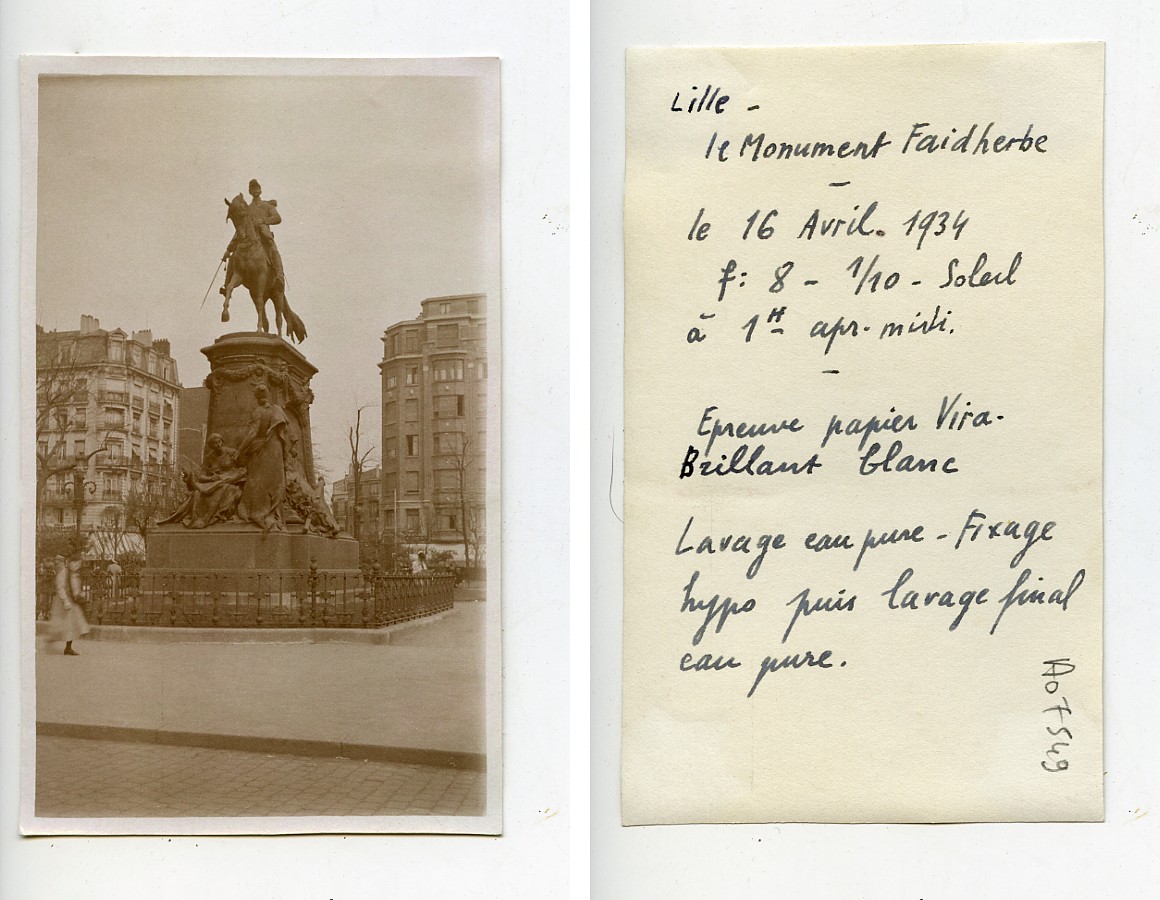 Lille -
le Monument Faidherbe
-
le 16 Avril. 1934
f: 8 - 1/10 - Soleil
à 1 H apr. midi.
-
Epreuve papier Vira-
Brillant blanc
Lavage eau pure - Fixage
hypo puis lavage final
eau pure.
A07549